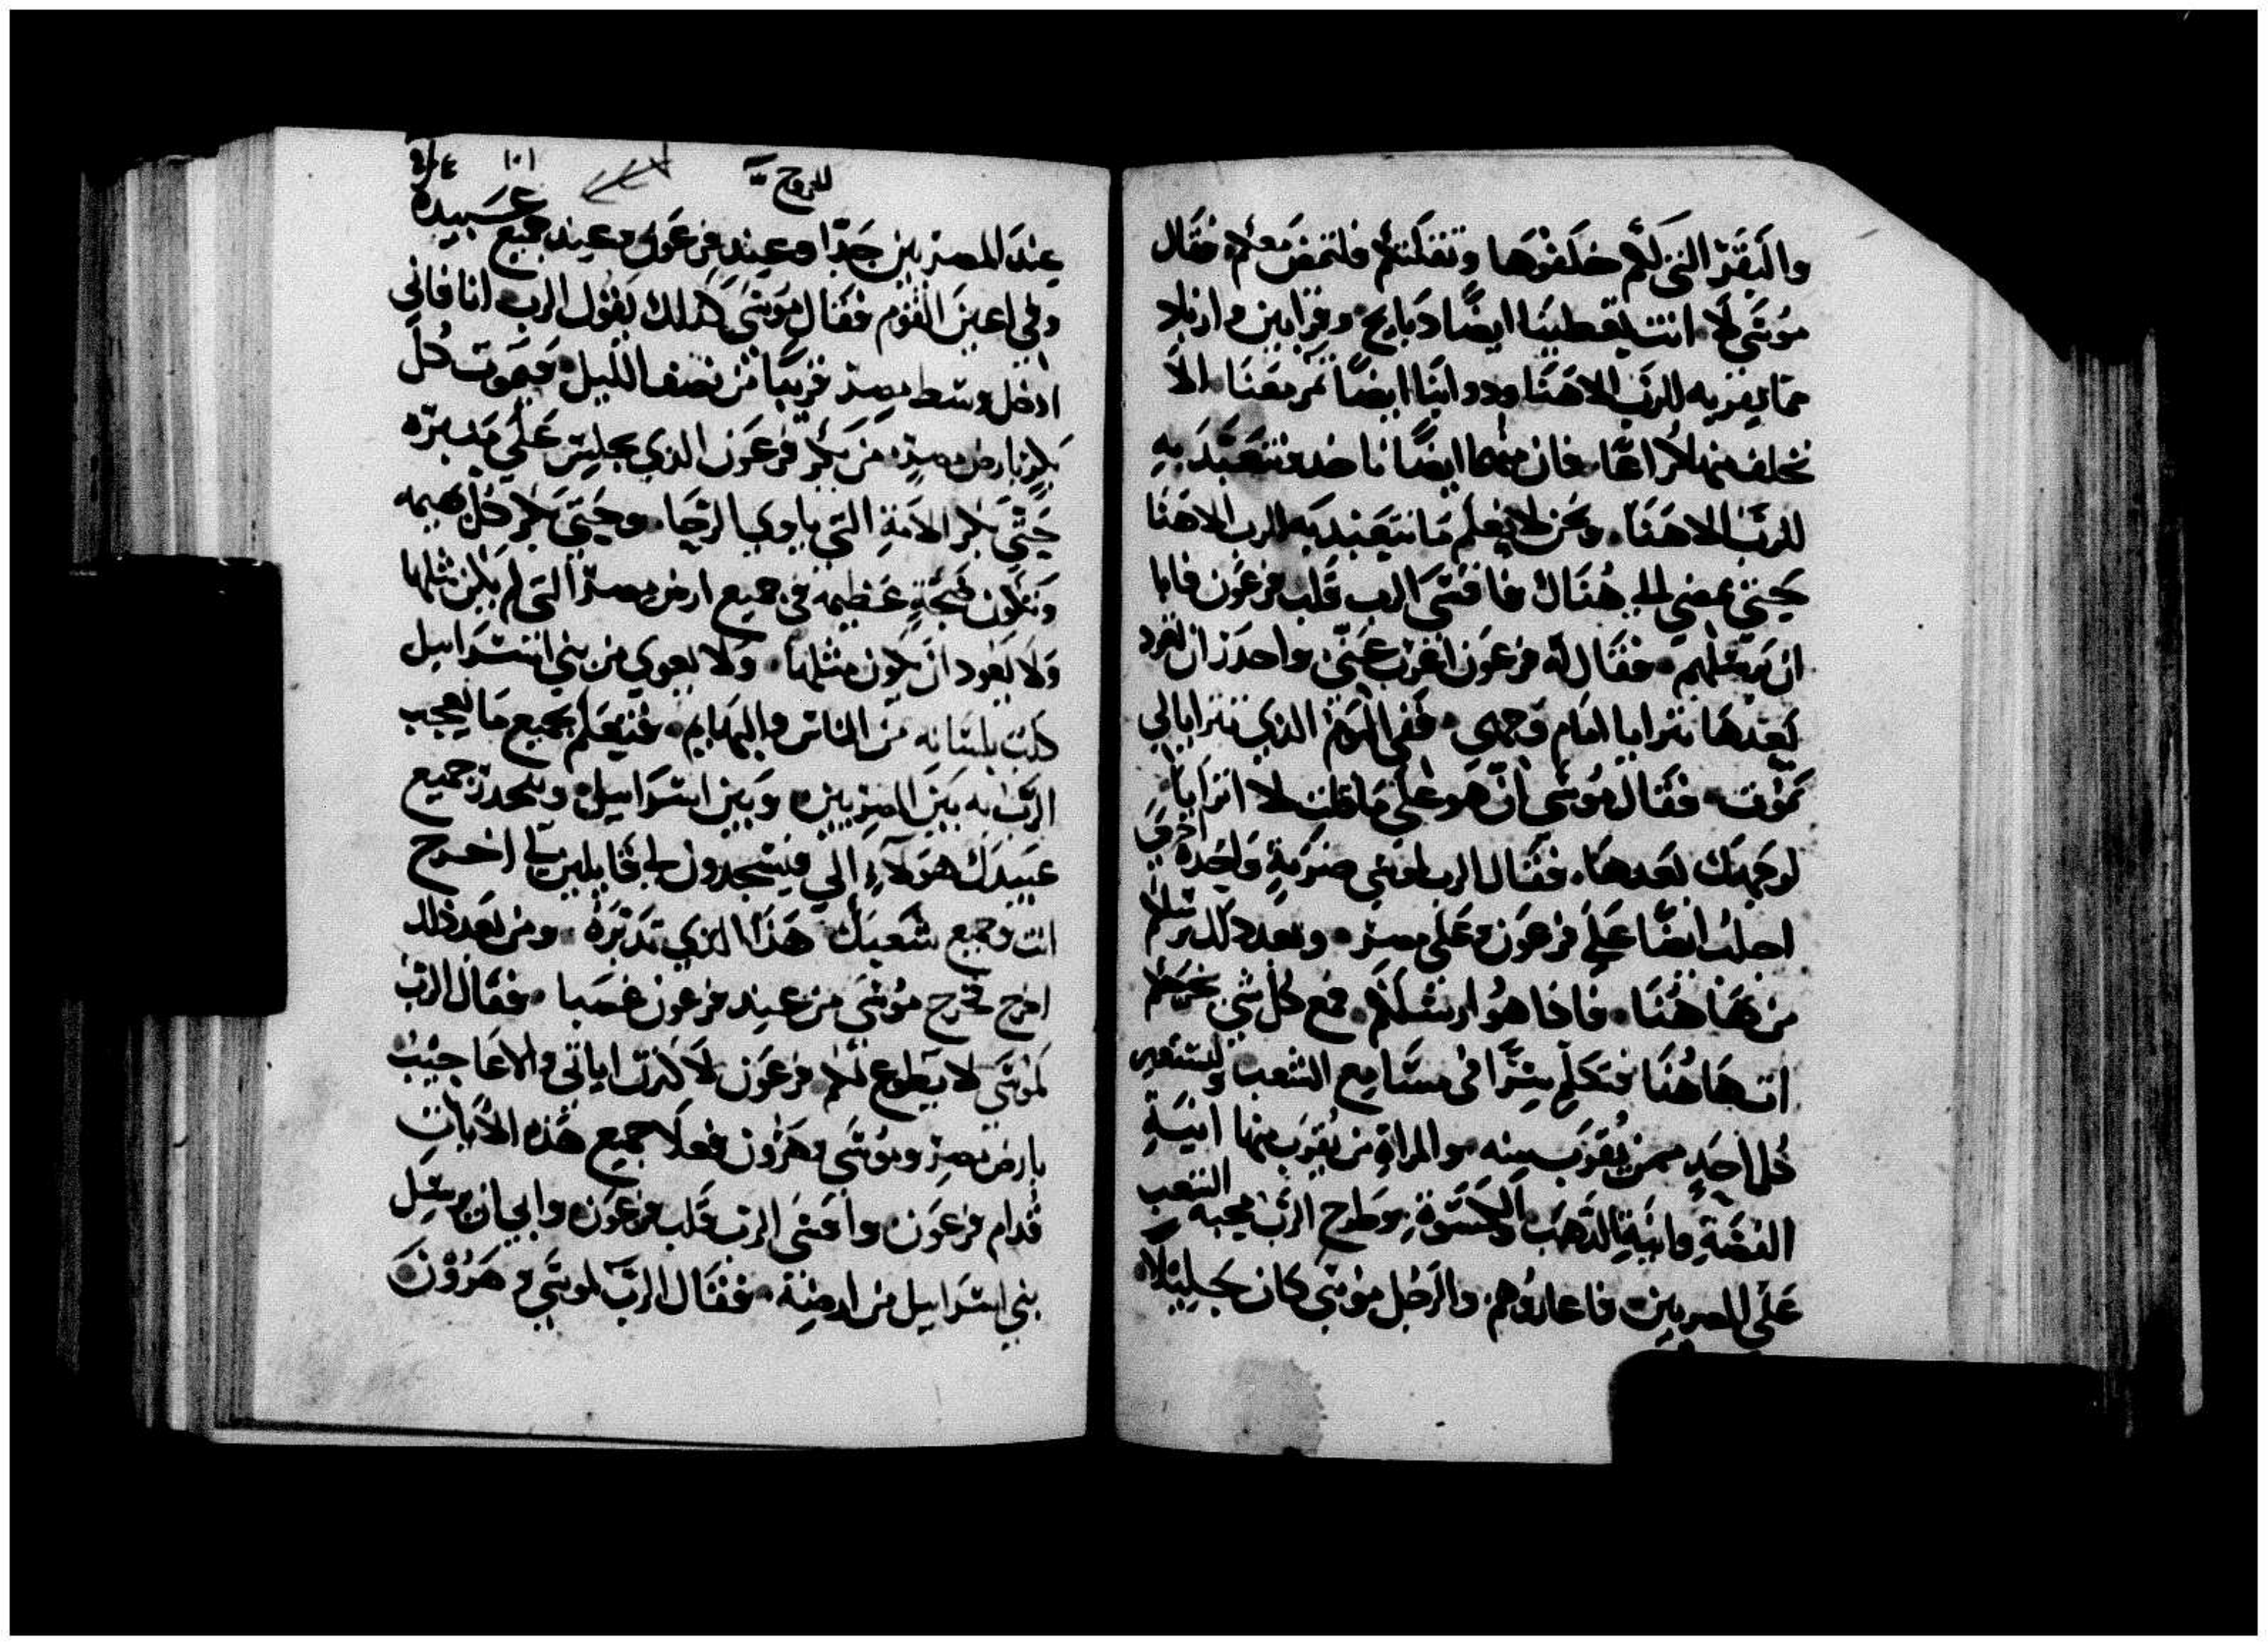 والبقر التي لكم خلفوها وثقلتكم فلتمض معكم فقال
موسى لا انت تعطينا ايضًا دبايح وقرابين وازيد
مما يقربه للرب الاهنا ودوابنا ايضًا تمر معنا الا
نخلف منهم كراعًا فان منها ايضًا ناخد ونتعبد به
للرب الاهنا ونحن لا نعلم ما نتعبد به للرب الاهنا
حتى نمضي الى هناك فاقسى الرب قلب فرعون فابا
ان يرسلهم فقال له فرعون اغرب عني واحدر ان تعود
بعدها تترايا امام وجهي ففي اليوم الذي تترايا لي
تموت فقال موسى ان هو على ما قلت لا اترايا
لوجهك بعدها فقال الرب لموسى ضربة واحدة اخرى
اجلب ايضًا على فرعون وعلى مصر وبعد دلك يرسلكم
من هاهنا فاذا هو ارسلكم مع كل شي يخرجكم
انت هاهنا فتكلم سرًا في مسامع الشعب وليستعير
كل احد ممن يقرب منه والمراة من يقرب منها انية
الفضة وانية الذهب والكسوة وطرح الرب محبه الشعب
على المصريين فاعاروهم والرجل موسى كان جليلًا
للخروج
١٠١
عند المصريين جدًا وعند فرعون وعند جميع عبيده
وفي اعين القوم فقال موسى كذلك يقول الرب انا فاني
ادخل وسط مصر قريبًا من نصف الليل فيموت كل
بكر بارض مصر من بكر فرعون الذي يجلس على منبره
حتى بكر الامة التي ياوي الرحا وحتى بكر كل بهيمه
وتكون ضجة عظيمه في جميع ارض مصر التي لم يكن مثلها
ولا يعود ان يكون مثلها ولا يعوي من بني استراييل
كلب بلسانه من الناس والبهايم فتعلم بجميع ما يعجب
الرب به بين المصريين وبين استراييل وينحدر جميع
عبيدك هولاء الي فيسجدون لي قايلين اخرج
انت وجميع شعبك هذا الذي تدبره ومن بعد ذلك
اخرج فخرج موسى من عند فرعون غضبا فقال الرب
لموسى لا يطوع لكم فرعون لاكثرت اياتي والاعاجيب
بارض مصر وموسى وهرون فعلا جميع هذه الايات
قدام فرعون واقسى الرب قلب فرعون وابى ان يرسل
بني استراييل من ارضه فقال الرب لموسى وهرون